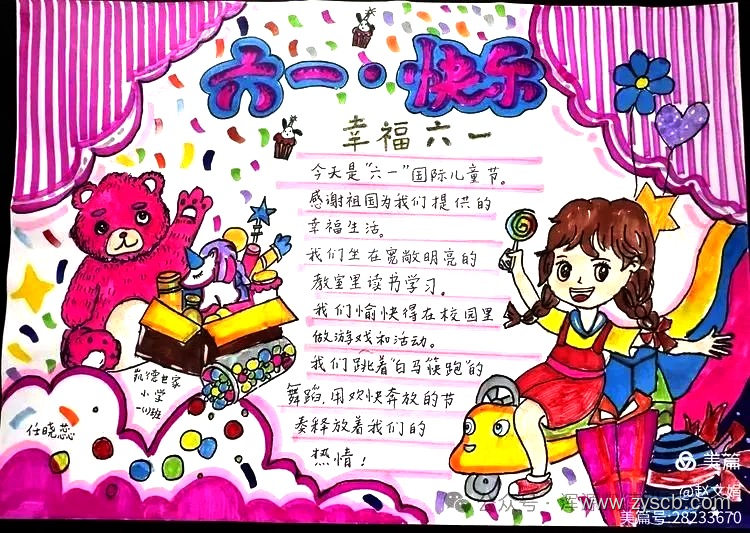 六一·快乐
幸福六一
今天是“六一”国际儿童节。
感谢祖国为我们提供的
幸福生活。
我们坐在宽敞明亮的
教室里读书学习。
我们愉快得在校园里
做游戏和活动。
我们跳着“白马筷跑”的
舞蹈,用欢快奔放的节
奏释放着我们的
热情!
凯德世家
小学
一(1)班
任晓蕊
美篇
@赵文婧
公众号·
www.zyscb.com
美篇号:28233670